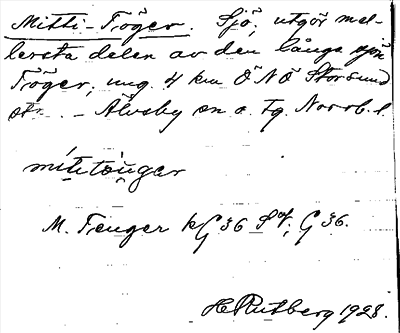 Mitti-Tröger. Sjö, utgör mel-
lersta delen av den långa sjön
Tröger, ung. 4 km ÖNÖ Storsund
str. - Älvsby sn o. tg. Norrb. l.
M. Teuger kG 36 SV, G 36.
H Rutberg 1928.